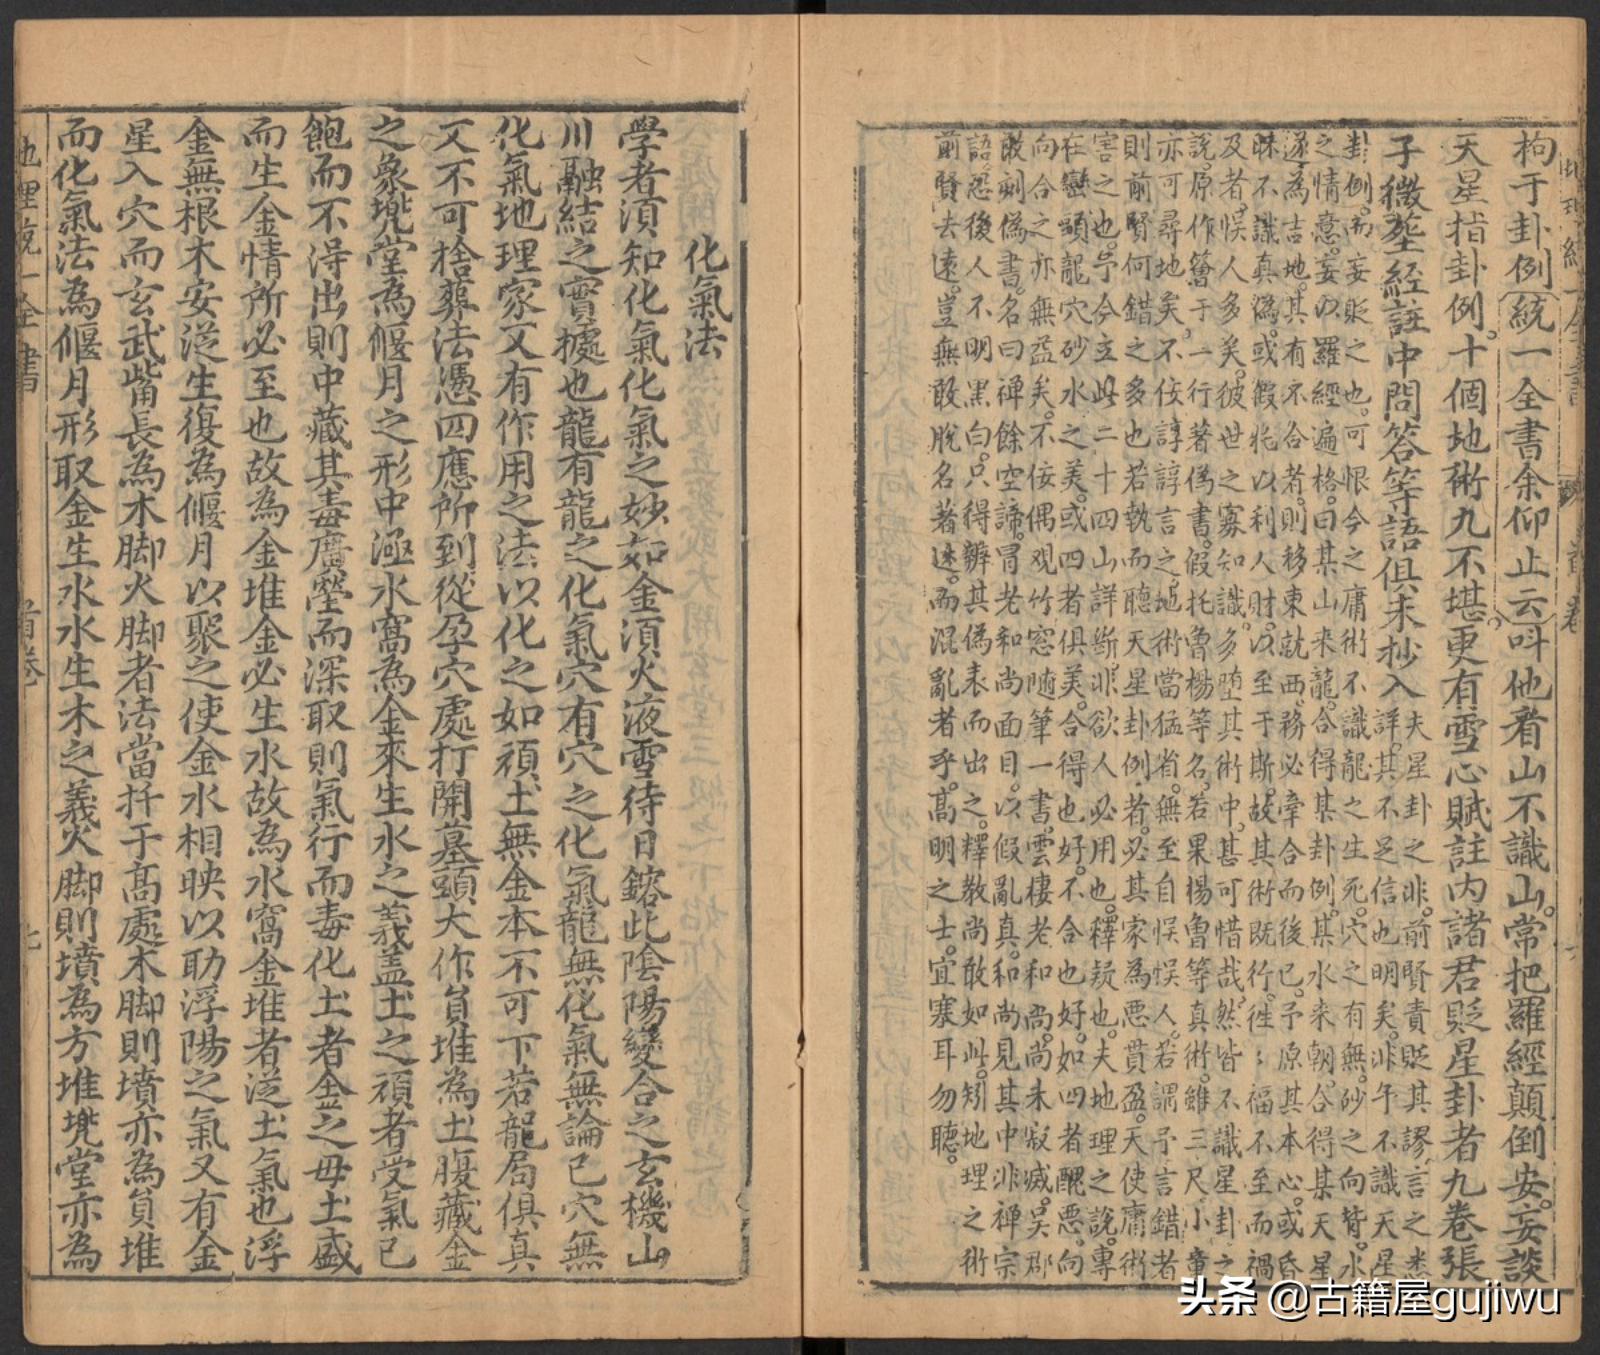 拘于卦例統一全書余仰止云呌他看山不識山常把羅經顛倒安妄談
天星指卦例十個地術九不堪更有雪心賦註內諸君貶星卦者九卷張
子微塟經註中問荅等語俱未抄入
夫星卦之非前賢責貶其謬言之悉
詳其不足信也明矣非午不識天星
卦例而妄貶之也可恨今之庸術不識龍之生死穴之有無砂之向背水
之情意妄以羅經遍格曰某山來龍合得某卦例某水來朝合得某天星
遂為吉地其有不合者則移東就西務必牽合而後已予原其本心或昏
昧不識真僞或假此以利人財以至于斯故其術既行徃徃福不至而禍
及者悞人多矣彼世之寡知識多墮其術中甚可惜哉然皆不識星卦之
說原作簪于一行著偽書假托曾楊等名若果楊曾等真術雖三尺小童
亦可尋地矣不佞諄諄言之地術當猛省無至自悞悞人若謂予言錯者
則前賢何錯之多也若執而聽天星卦例者必其家為惡貫盈天使庸術
害之也予今立此二十四山詳斷非欲人必用也釋疑也夫地理之說專
在巒頭龍穴砂水之美或四者俱美合得也好不合也好如四者醜惡向
向合之亦無益矣不佞偶观竹窓随筆一書雲棲老和尚尚未寂滅吳郡
敢刻偽書名曰禅餘空諦冒老和尚面目以假亂真和尚見其中非禅宗
語恐後人不明黑白只得辦其偽表而出之釋教尚敢如此矧地理之術
前賢去遠豈無敢脫名著述而混亂者乎高明之士宜塞耳勿聽
化氣法
學者湏知化氣化氣之妙如金湏火液雪待日鎔此陰陽變合之玄機山
川融結之實擄也龍有龍之化氣穴有穴之化氣龍無化氣無論已穴無
化氣地理家又有作用之法以化之如頑土無金本不可下若龍局俱真
又不可捨葬法憑四應所到從孕穴處打開墓頭大作負堆為土腹藏金
之象兠堂為偃月之形中極水窩為金來生水之義盖土之頑者受氣已
飽而不得出則中藏其毒廣塋而深取則氣行而毒化土者金之母土盛
而生金情所必至也故為金堆金必生水故為水窩金堆者泛土氣也浮
金無根木安泛生復為偃月以聚之使金水相映以助浮陽之氣又有金
星入穴而玄武觜長為木脚火脚者法當扦于高處木脚則墳亦為負堆
而化氣法為偃月形取金生水水生木之義火脚則墳為方堆兠堂亦為
地理統一全書
首卷
七